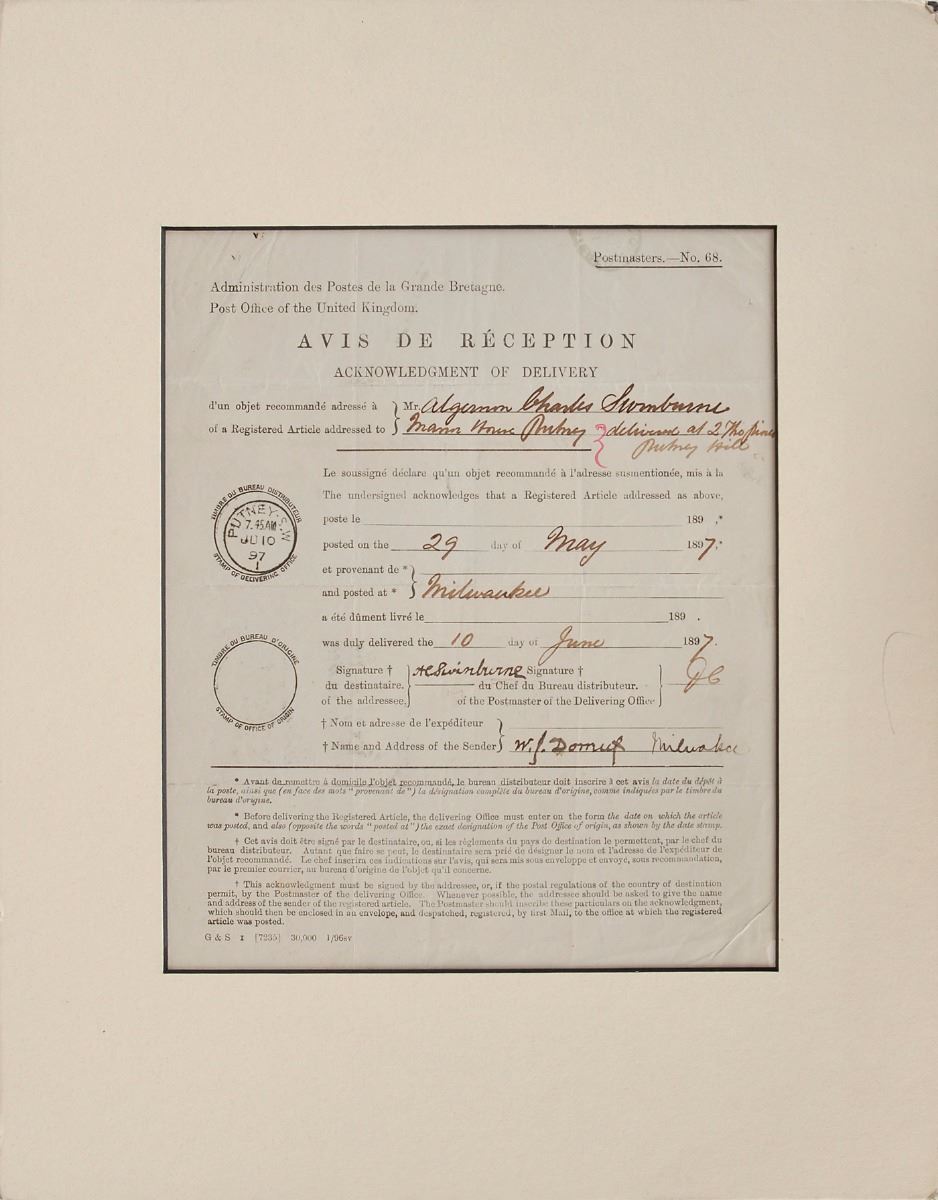 Postmasters.—No. 68.
Administration des Postes de la Grande Bretagne.
Post Office of the United Kingdom.
AVIS DE RÉCEPTION
ACKNOWLEDGMENT OF DELIVERY
d'un objet recommandé adressé à } Mr. Algernon Charles Swinburne
of a Registered Article addressed to } House Putney } delivered at 2 The Pines
Putney Hill
Le soussigné déclare qu'un objet recommandé à l'adresse susmentionée, mis à la
The undersigned acknowledges that a Registered Article addressed as above,
poste le 189 ,*
posted on the 29 day of May 1897,*
et provenant de * }
and posted at * } Milwaukee
a été dûment livré le 189 .
was duly delivered the 10 day of June 1897.
Signature † } ACSwinburne Signature † }
du destinataire. du Chef du Bureau distributeur.
of the addressee. of the Postmaster of the Delivering Office
† Nom et adresse de l'expéditeur }
† Name and Address of the Sender } W.J.
TIMBRE DU BUREAU DISTRIBUTEUR
PUTNEY. S.W
7.45AM
JU 10
97
1
STAMP OF DELIVERING OFFICE
TIMBRE DU BUREAU D'ORIGINE
STAMP OF OFFICE OF ORIGIN
* Avant de remettre à domicile l'objet recommandé, le bureau distributeur doit inscrire à cet avis la date du dépôt à
la poste, ainsi que (en face des mots "provenant de") la désignation complète du bureau d'origine, comme indiquées par le timbre du
bureau d'origine.
* Before delivering the Registered Article, the delivering Office must enter on the form the date on which the article
was posted, and also (opposite the words "posted at") the exact designation of the Post Office of origin, as shown by the date stamp.
† Cet avis doit être signé par le destinataire, ou, si les règlements du pays de destination le permettent, par le chef du
bureau distributeur. Autant que faire se peut, le destinataire sera prié de désigner le nom et l'adresse de l'expéditeur de
l'objet recommandé. Le chef inscrira ces indications sur l'avis, qui sera mis sous enveloppe et envoyé, sous recommandation,
par le premier courrier, au bureau d'origine de l'objet qu'il concerne.
† This acknowledgment must be signed by the addressee, or, if the postal regulations of the country of destination
permit, by the Postmaster of the delivering Office. Whenever possible, the addressee should be asked to give the name
and address of the sender of the registered article. The Postmaster should inscribe these particulars on the acknowledgment,
which should then be enclosed in an envelope, and despatched, registered, by first Mail, to the office at which the registered
article was posted.
G & S I [7235] 30,000 1/96sv